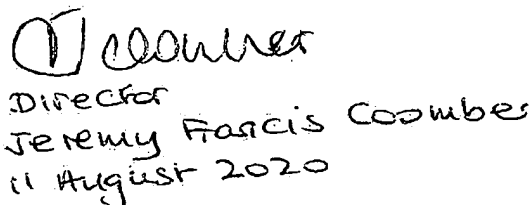 J Coomber
Director
Jeremy Francis Coomber
11 August 2020